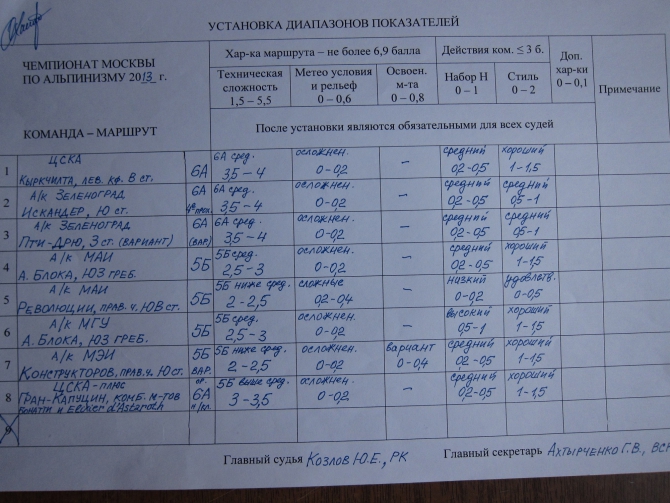 УСТАНОВКА ДИАПАЗОНОВ ПОКАЗАТЕЛЕЙ
ЧЕМПИОНАТ МОСКВЫ
ПО АЛЬПИНИЗМУ 2013 г.
КОМАНДА – МАРШРУТ
Хар-ка маршрута – не более 6,9 балла
Действия ком. ≤ 3 б.
Доп. хар-ки 0 – 0,1
Примечание
Техническая сложность 1,5 – 5,5
Метео условия и рельеф 0 – 0,6
Освоен. м-та 0 – 0,8
Набор Н 0 – 1
Стиль 0 – 2
После установки являются обязательными для всех судей
1 ЦСКА 6А сред. осложнен. – средний хороший
Кыркчилта, лев. кф. В ст. 6А 3,5 – 4 0-0,2 0,2-0,5 1-1,5
2 А/к Зеленоград 6А 6А сред. осложнен. – средний средний
Искандер, Ю ст. 3,5 – 4 0-0,2 0,2-0,5 0,5-1
3 А/к Зеленоград 6А 6А сред. осложнен. – средний средний
Пти-Дрю, З ст. (вариант) (вар) 3,5 – 4 0-0,2 0,2-0,5 0,5-1
4 А/к МАИ 5Б 5Б сред. осложнен. – средний хороший
А. Блока, ЮЗ греб. 2,5 – 3 0-0,2 0,2-0,5 1-1,5
5 А/к МАИ 5Б 5Б ниже сред. сложные – низкий удовлетв.
Революции, прав. ч. ЮВ ст. 2 – 2,5 0,2-0,4 0-0,2 0-0,5
6 А/к МГУ 5Б 5Б сред. осложнен. – высокий хороший
А. Блока, ЮЗ греб. 2,5 – 3 0-0,2 0,5-1 1-1,5
7 А/к МЭИ 5Б 5Б ниже сред. осложнен. вариант средний хороший
Конструкторов, прав. ч. Ю ст. вар. 2 – 2,5 0-0,2 0-0,4 0,2-0,5 1-1,5
8 ЦСКА-плюс ор. 5Б выше сред. осложнен. – средний хороший
Гран-Капуцин, комб. м-тов 6А 3 – 3,5 0-0,2 0,2-0,5 1-1,5
Бонатти и
9
Главный судья Козлов Ю.Е., РК
Главный секретарь Ахтырченко Г.В.,